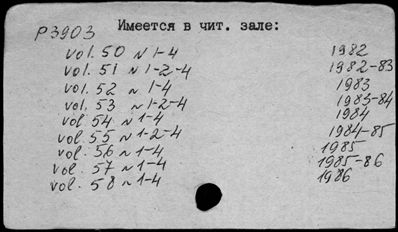 P3903 Имеется в чит. зале:
vol. 50 N 1-4 1982
vol. 51 N 1-2-4 1982-83
vol. 52 N 1-4 1983
vol. 53 N 1-2-4 1983-84
vol. 54 N 1-4 1984
vol. 55 N 1-2-4 1984-85
vol. 56 N 1-4 1985
vol. 57 N 1-4 1985-86
vol. 58 N 1-4 1986